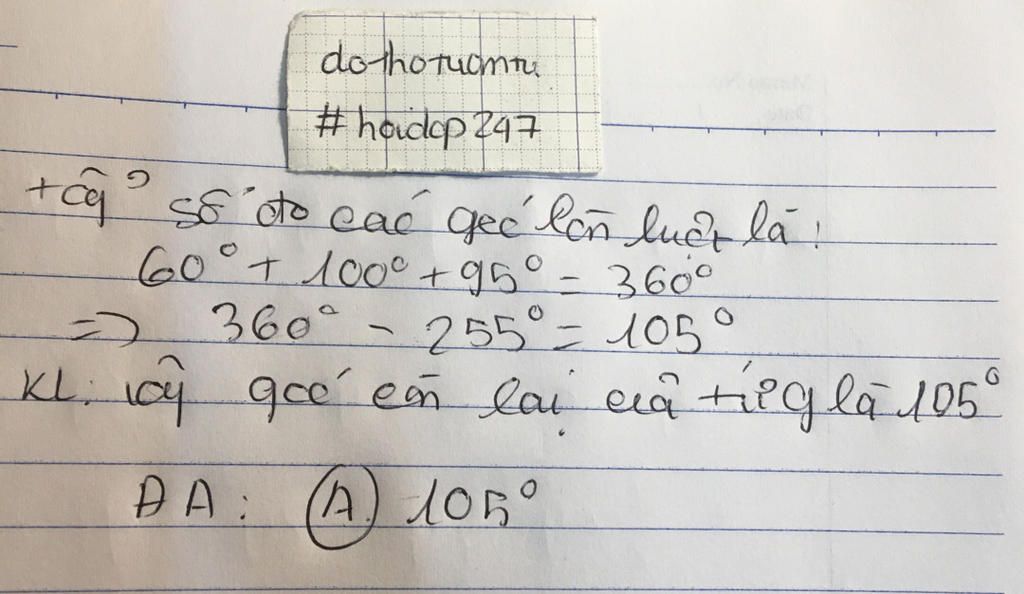 dothotuantu
#hoidap247
+ Có số đo các góc lần lượt là:
60° + 100° + 95° = 360°
=> 360° - 255° = 105°
KL: Vậy góc còn lại của tứ g là 105°
ĐA: A. 105°